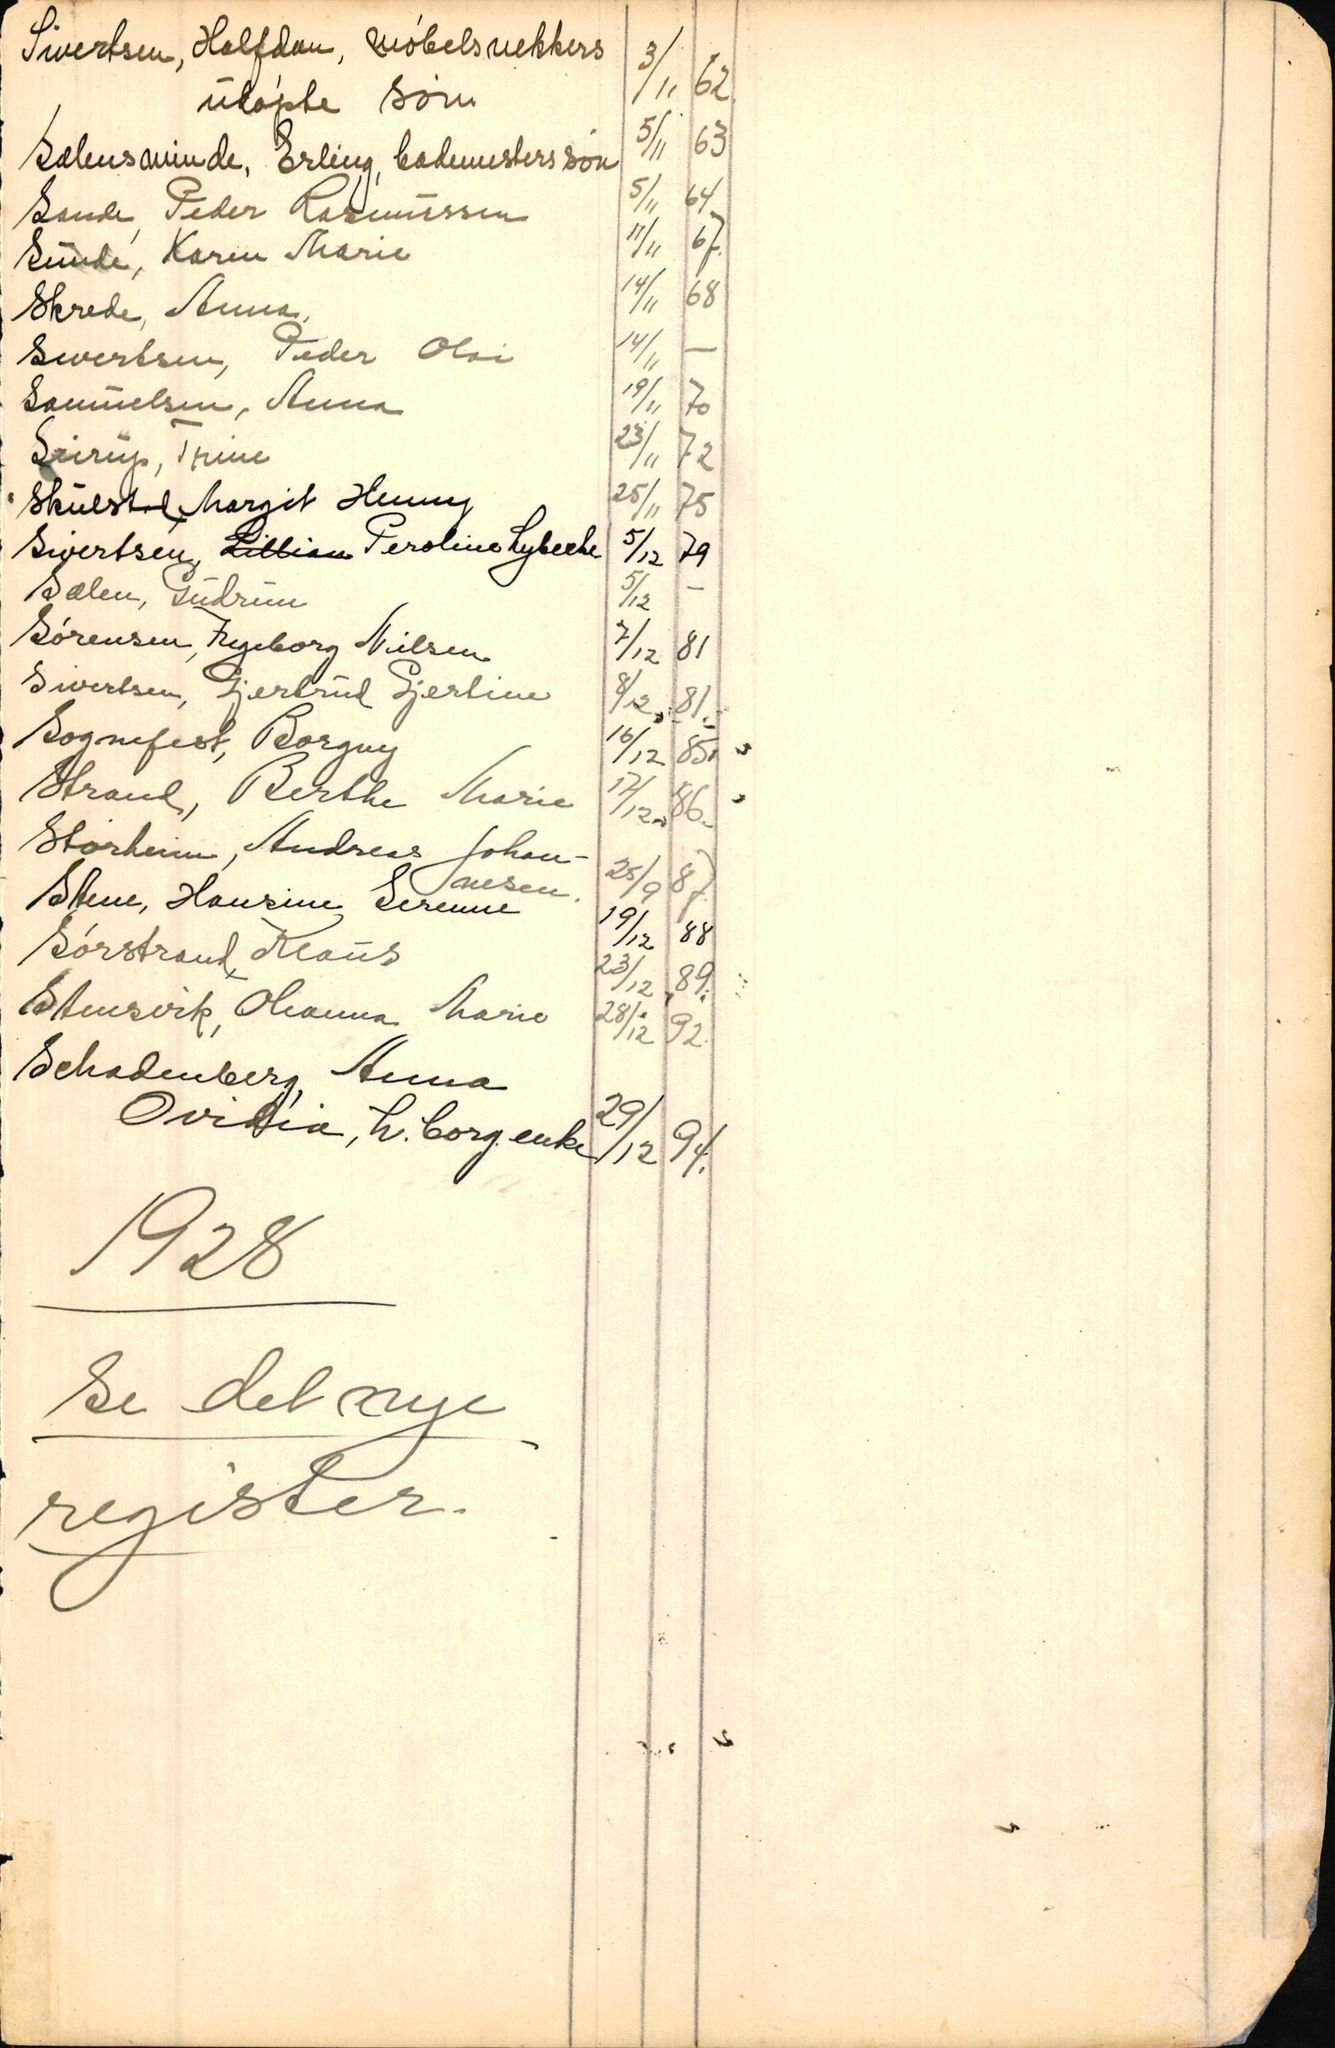 Sivertsen, Halfdan, møbelsnekkers 3/11 62.
udøpte søn
Sælensminde, Erling, bademesters søn 5/11 63
Sande, Peder Rasmussen 5/11 64
Sunde, Karen Marie 11/11 67.
Skrede, Anna. 14/11 68
Sivertsen, Peder Olai 14/11 —
Samuelsen, Anna 19/11 70
Seirup, Trine 23/11 72
Skulstad, Margit Henny 25/11 75
Sivertsen, Lillian Peroline Lybecke 5/12 79
Sælen, Gudrun 5/12 —
Sørensen, Ingeborg Nilsen 7/12 81
Sivertsen, Gjertrud Gjertine 8/12 81.
Sognefest, Borguy 16/12 85.
Strand, Berthe Marie 17/12 86.
Storheim, Andreas Johan-
nesen. 25/9 87.
Stene, Hansine Serenne 19/12 88
Sørstrand, Klaus 23/12 89.
Stensvik, Oleanna Marie 28/12 92.
Schadenberg, Anna
Ovidia, h. borg. enke 29/12 94.
1928
Se det nye
register.